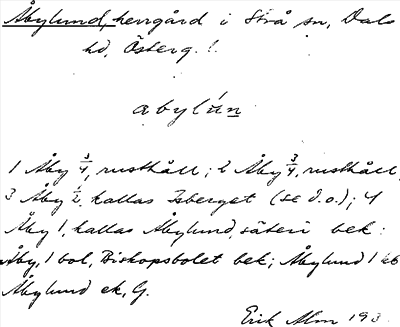 Åbylund, herrgård i Strå sn, Dals
hd, Österg. l.
abylún
1 Åby 3/4, rusthåll; 2 Åby 3/4, rusthåll,
3 Åby 1/2, kallas Isberget (se d.o.); 4
Åby 1, kallas Åbylund, säteri bek:
Åby, 1 bol, Biskopsbolet bek; Åbylund 1
Åbylund ek, G.
Erik Alm 193